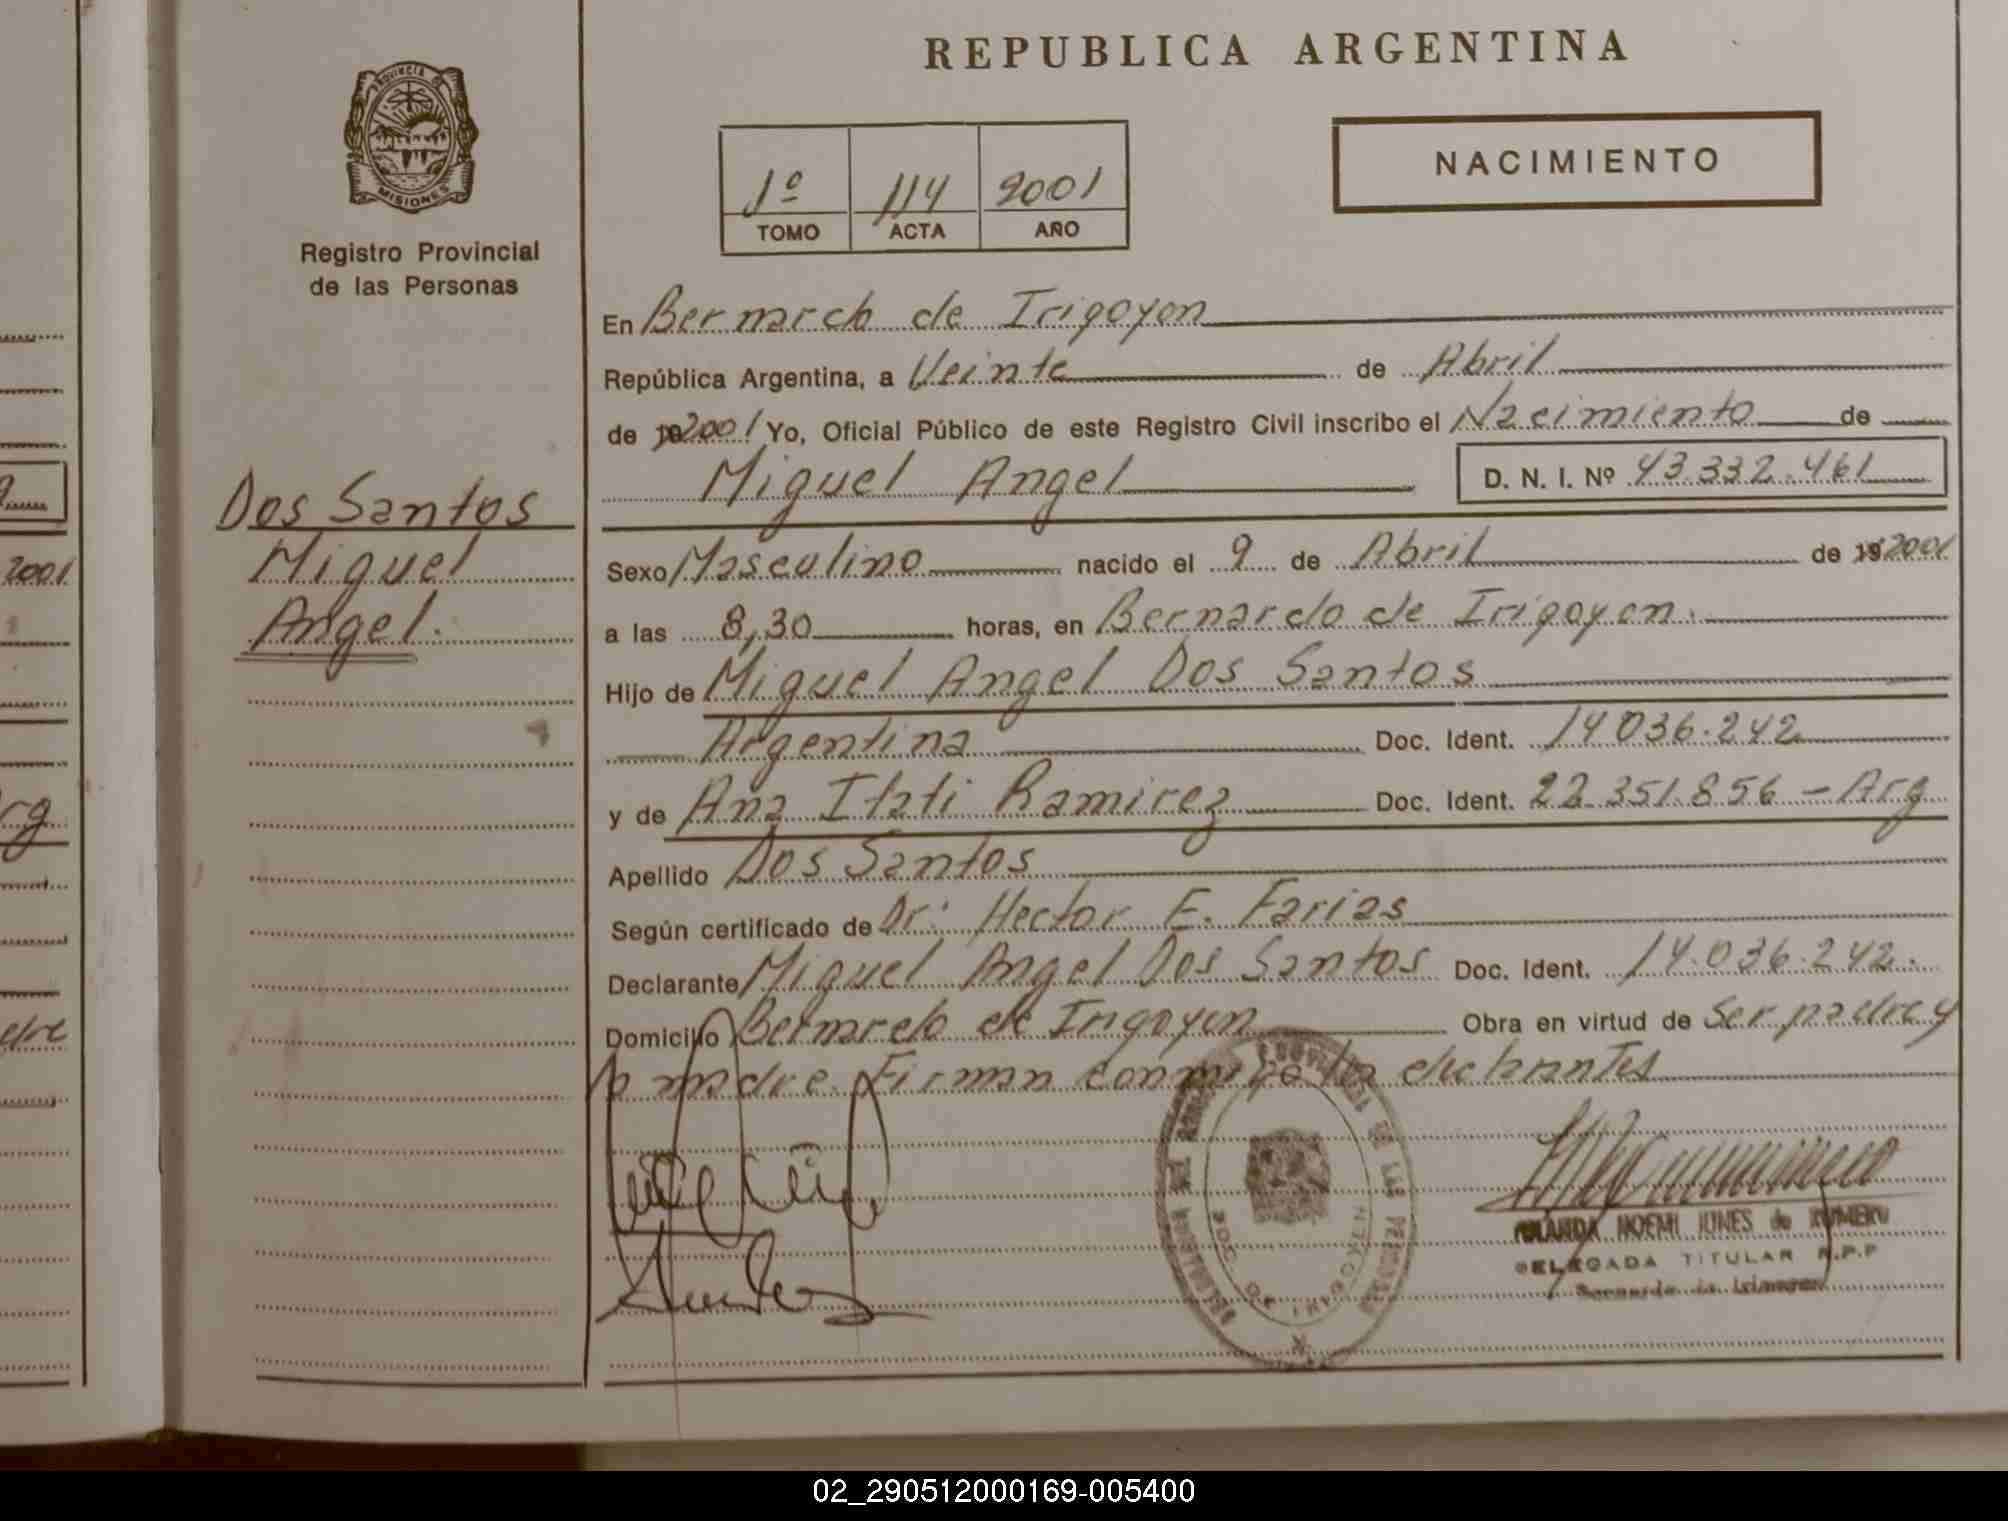 REPUBLICA ARGENTINA
PROVINCIA DE
MISIONES
Registro Provincial
de las Personas
1º 114 2001
TOMO ACTA AÑO
NACIMIENTO
En Bernardo de Irigoyen
República Argentina, a Veinte de Abril
de 2001 Yo, Oficial Público de este Registro Civil inscribo el Nacimiento de
Miguel Angel D. N. I. Nº 43.332.461
Dos Santos
Miguel
Angel.
Sexo Masculino nacido el 9 de Abril de 192001
a las 8,30 horas, en Bernardo de Irigoyen.
Hijo de Miguel Angel Dos Santos
Argentina Doc. Ident. 14036.242
y de Ana Itati Ramirez Doc. Ident. 22.351.856 - Arg
Apellido Dos Santos
Según certificado de Dr: Hector E. Farias
Declarante Miguel Angel Dos Santos Doc. Ident. 14.036.242.
Domicilio Bernardo de Irigoyen Obra en virtud de Ser padre y
la madre. Firman conmigo los declarantes
NOEMI JUNES de ROMERO
DELEGADA TITULAR R.P.P
Bernardo de Irigoyen
2001
02_290512000169-005400